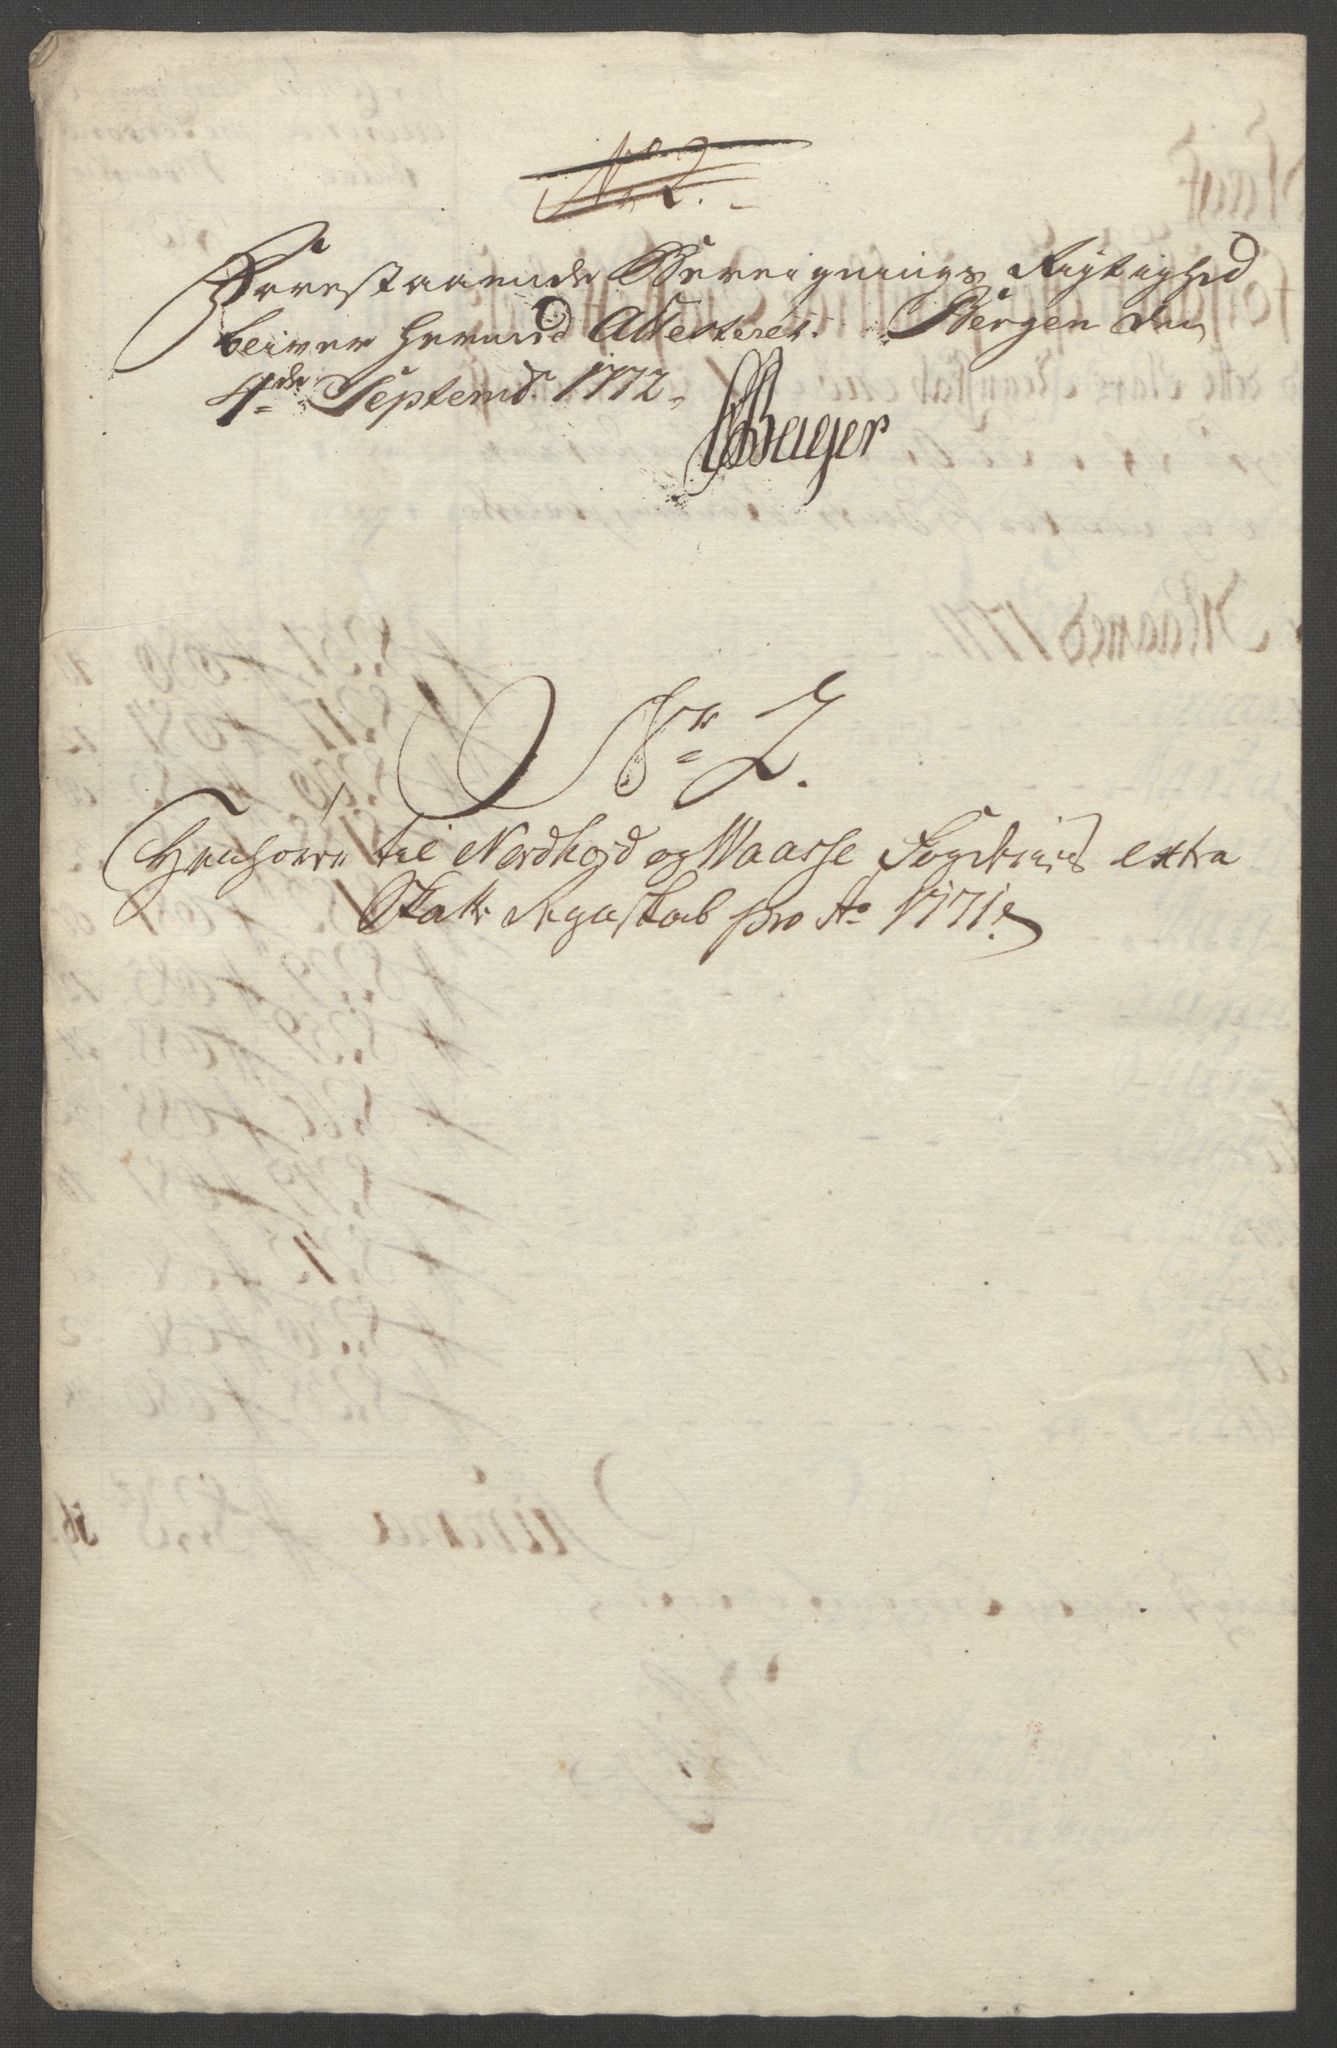 No 2.
Forestaaende Bereignings Rigtighed
bliver herved Attesteret. Bergen den
4de Septemb. 1772.
Bager
No 2.
Henhører til Nordhord og Waasse Fogderies extra
Skatte Regnskab pro Ao 1771.